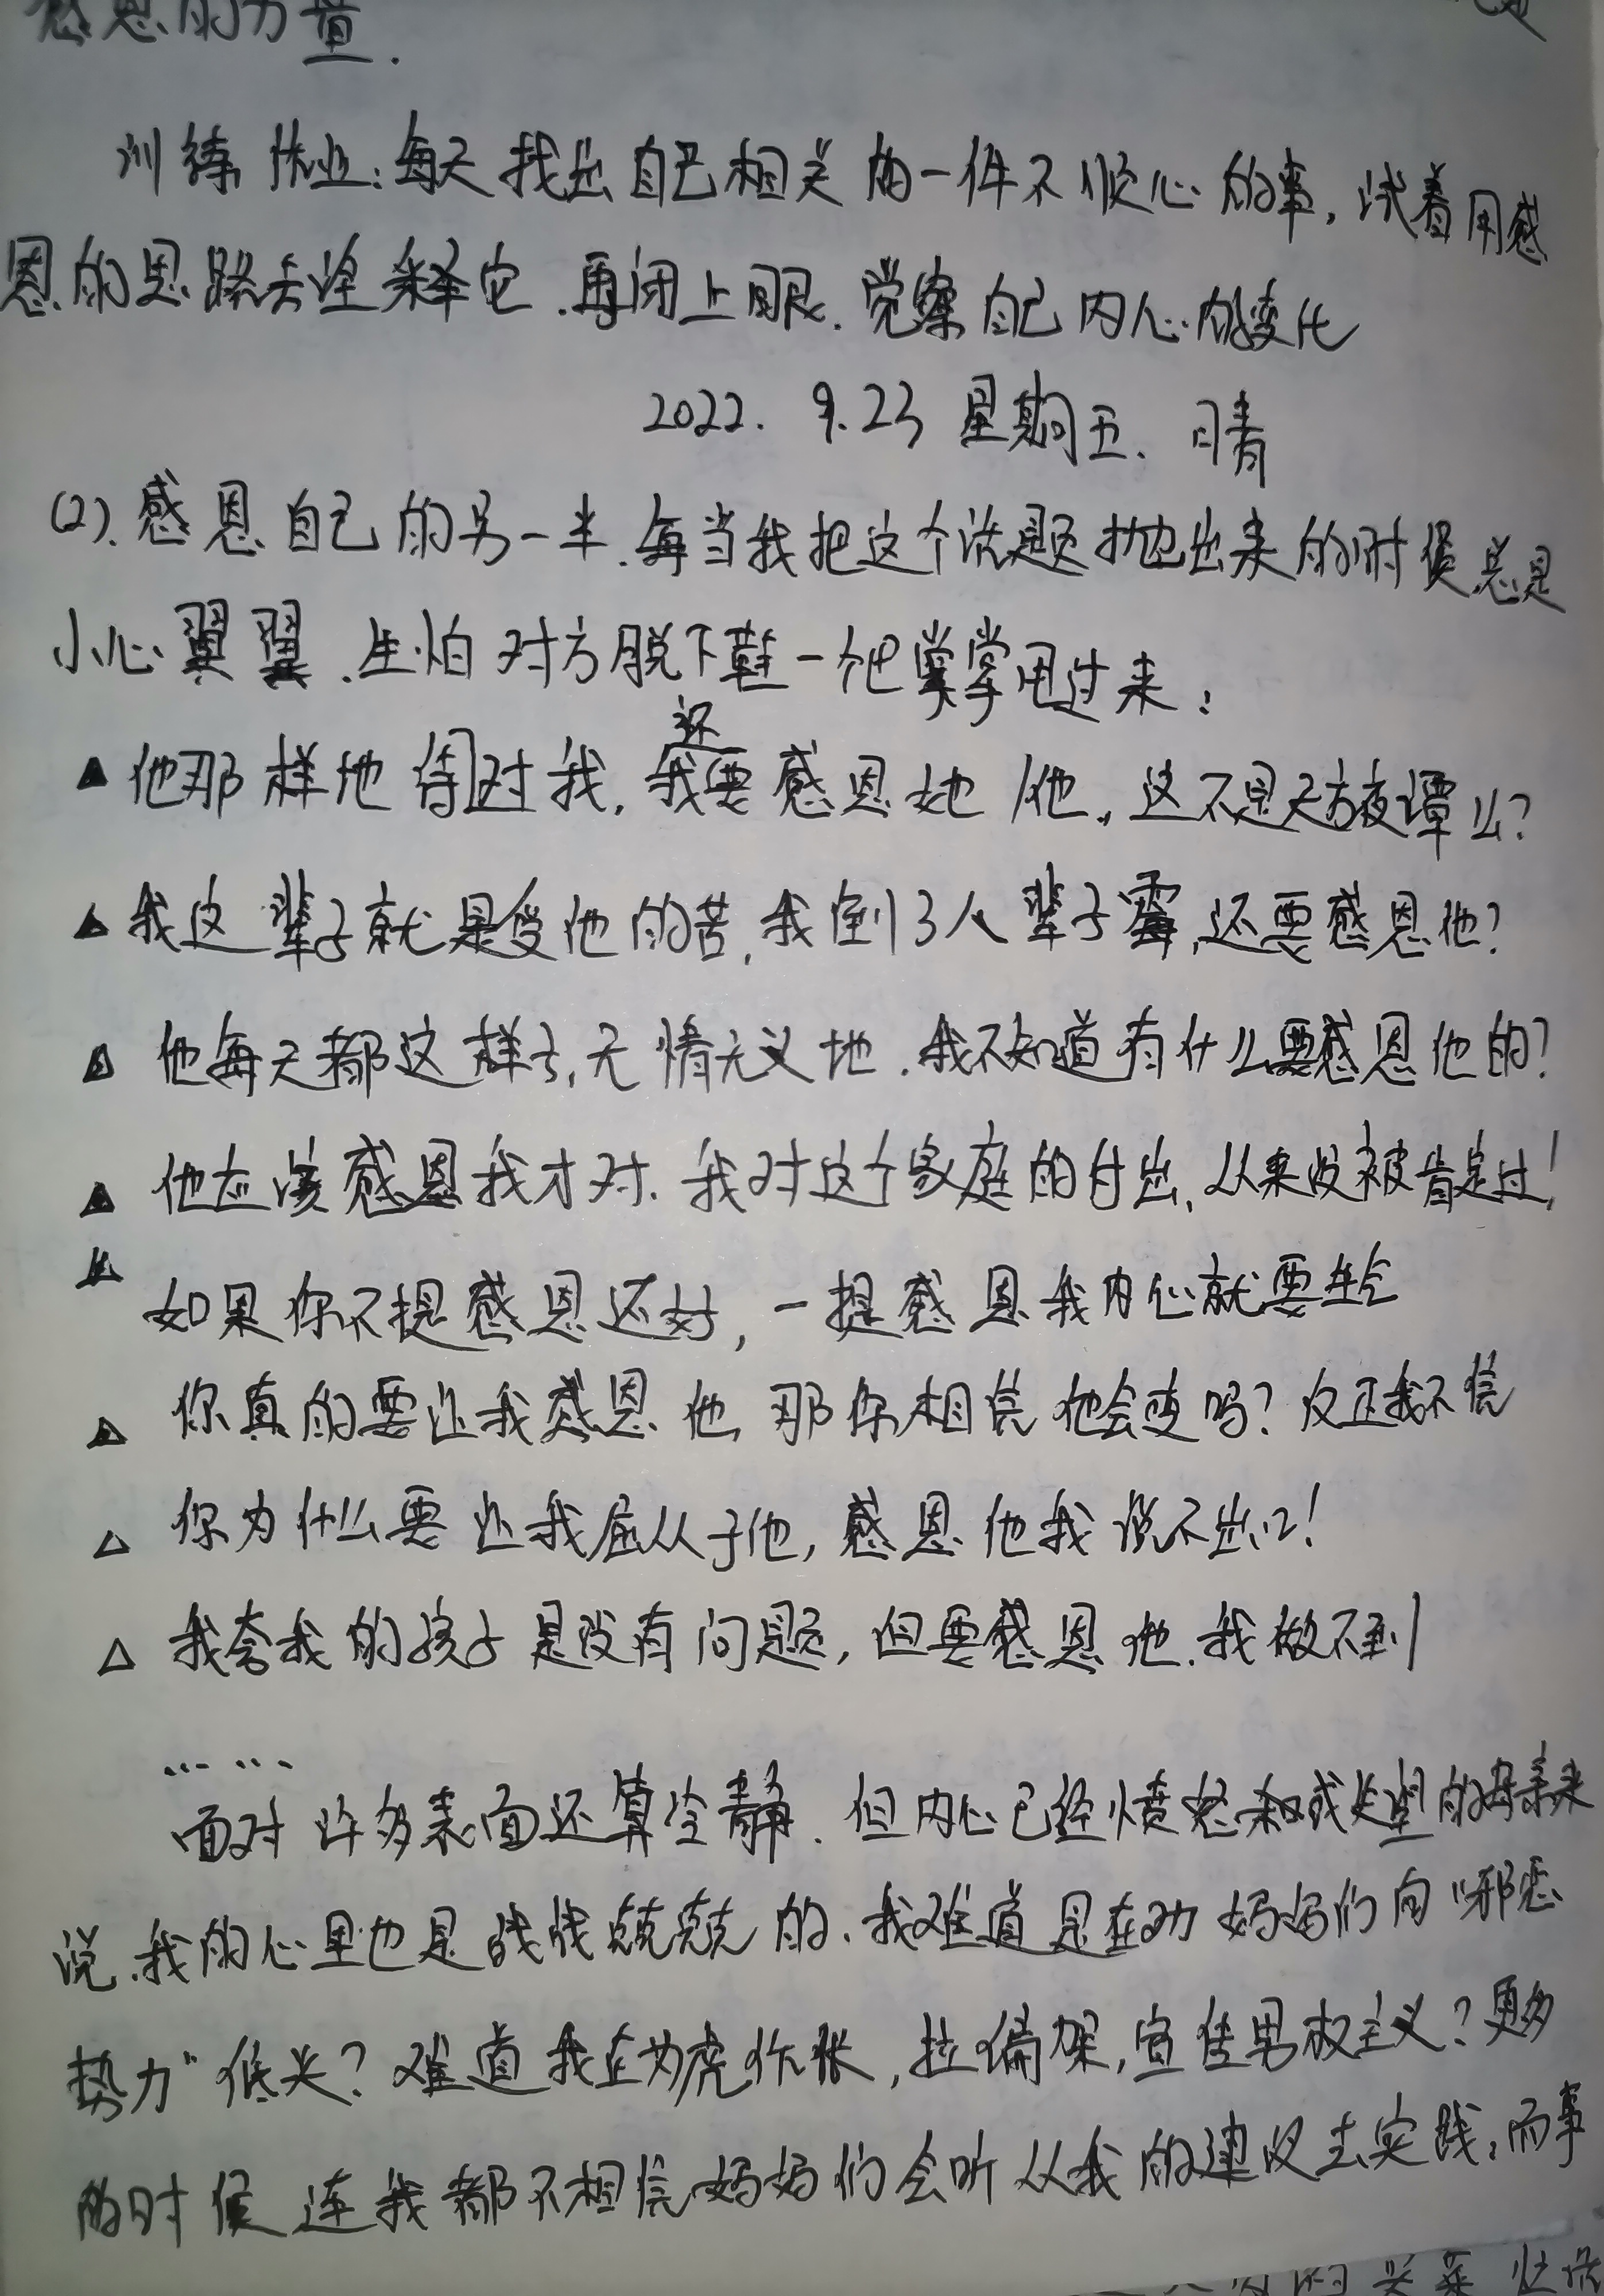 感恩的力量.
训练作业:每天找出自己相关的一件不顺心的事,试着用感
恩的思路去诠释它.再闭上眼.觉察自己内心的变化
2022. 9.23 星期五. 晴
(2).感恩自己的另一半.每当我把这个话题抛出来的时候,总是
小心翼翼.生怕对方脱下鞋一把掌掌甩过来:
▲他那样地待对我,我还要感恩她/他,这不是天方夜谭么?
▲我这辈子就是受他的苦,我倒了八辈子霉,还要感恩他?
▲他每天都这样子,无情无义地.我不知道有什么要感恩他的?
▲他应该感恩我才对.我对这个家庭的付出,从来没被肯定过!
▲如果你不提感恩还好,一提感恩我内心就要生
▲你真的要让我感恩他,那你相信他会变吗?反正我不信
△你为什么要让我屈从于他,感恩他我说不出口!
△我夸我的孩子是没有问题,但要感恩他.我做不到
……
面对许多表面还算冷静.但内心已经愤怒和或失望的母亲来
说.我的心里也是战战兢兢的.我难道是在劝妈妈们向"邪恶
势力"低头?难道我在为虎作怅,拉偏架,宣传男权主义?更多
的时候连我都不相信妈妈们会听从我的建议去实践,而事